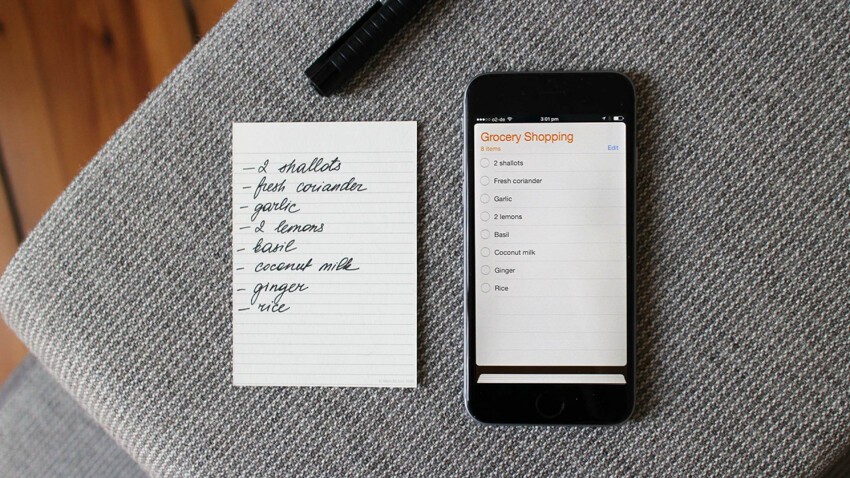 – 2 shallots
– fresh coriander
– garlic
– 2 lemons
– basil
– coconut milk
– ginger
– rice
o2-de
3:01 pm
Grocery Shopping
8 items Edit
2 shallots
Fresh coriander
Garlic
2 lemons
Basil
Coconut milk
Ginger
Rice